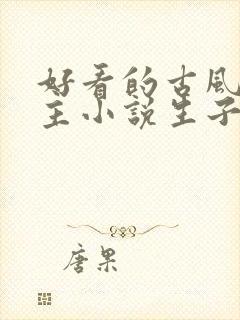 好看的古風
主小說生子
唐果